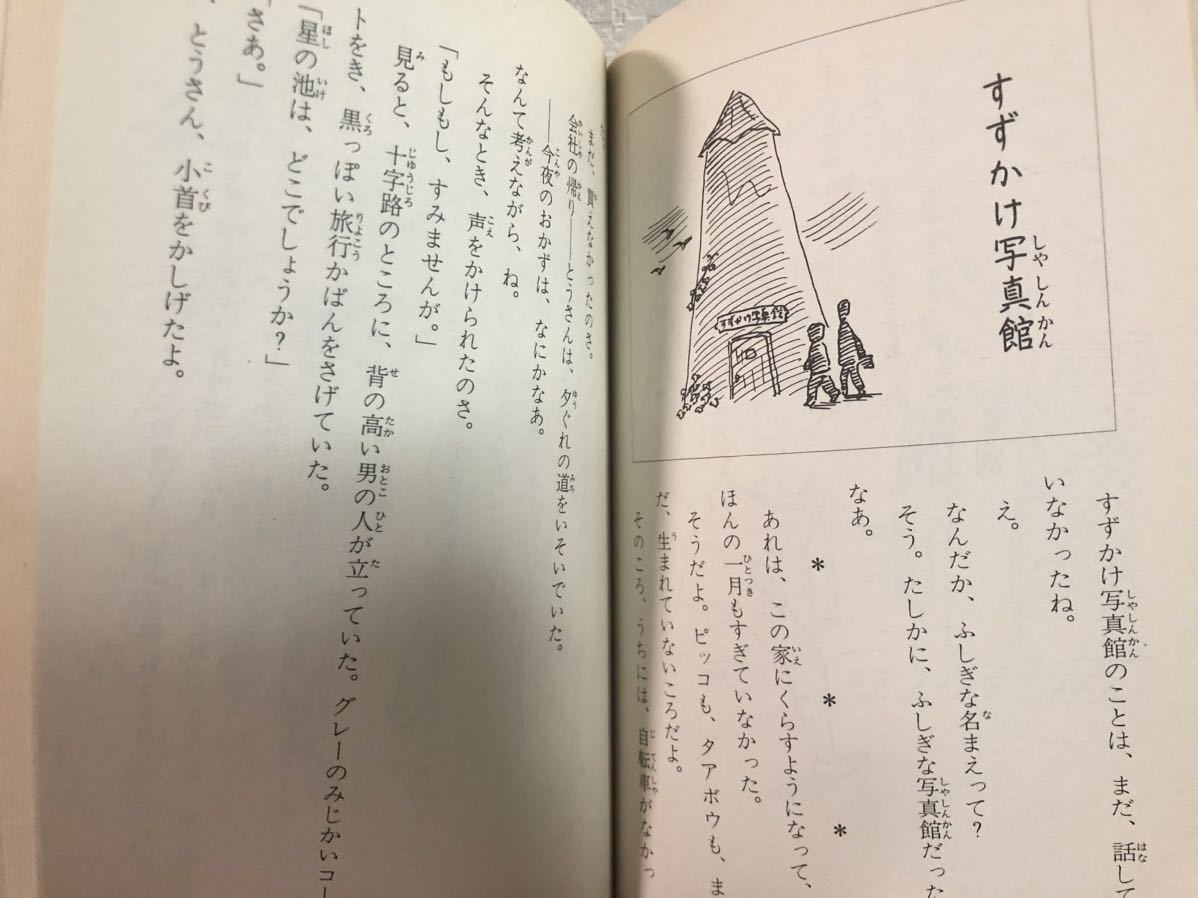 すずかけ写真館
すずかけ写真館
すずかけ写真館のことは、まだ、話して
いなかったね。
え。
なんだか、ふしぎな名まえって?
そう。たしかに、ふしぎな写真館だった
なあ。
* * *
あれは、この家にくらすようになって、
ほんの一月もすぎていなかった。
そうだよ。ピッコも、タアボウも、ま
だ、生まれていないころだよ。
そのころ、うちには、自転車がなかっ
まだ、買えなかったのさ。
会社の帰り——とうさんは、夕ぐれの道をいそいでいた。
——今夜のおかずは、なにかなあ。
なんて考えながら、ね。
そんなとき、声をかけられたのさ。
「もしもし、すみませんが。」
見ると、十字路のところに、背の高い男の人が立っていた。グレーのみじかいコー
トをき、黒っぽい旅行かばんをさげていた。
「星の池は、どこでしょうか?」
「さあ。」
、とうさん、小首をかしげたよ。